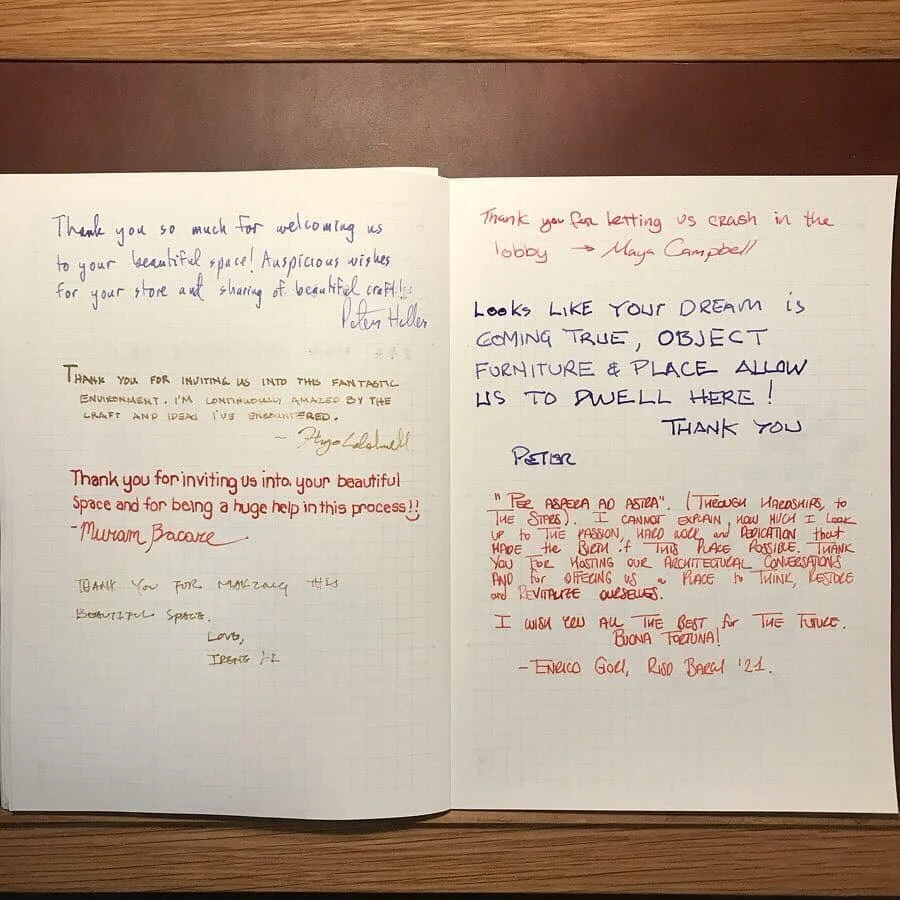 Thank you so much for welcoming us
to your beautiful space! Auspicious wishes
for your store and sharing of beautiful craft!
Peter Heller
THANK YOU FOR INVITING US INTO THIS FANTASTIC
ENVIRONMENT. I'M CONTINUOUSLY AMAZED BY THE
CRAFT AND IDEAS I'VE ENCOUNTERED.
~
Thank you for inviting us into your beautiful
Space and for being a huge help in this process!!
-
THANK YOU FOR MAKING THIS
BEAUTIFUL SPACE.
LOVE,
IRENE
Thank you for letting us crash in the
lobby → Maya Campbell
LOOKS LIKE YOUR DREAM is
COMING TRUE, OBJECT
FURNITURE & PLACE ALLOW
US TO DWELL HERE!
THANK YOU
PETER
"PER ASPERA AD ASTRA". (THROUGH HARDSHIPS, to
THE STARS). I CANNOT EXPLAIN HOW MUCH I LOOK
UP to THE PASSION, HARD WORK and DEDICATION that
MADE the BIRTH of THIS PLACE POSSIBLE. THANK
YOU FOR HOSTING OUR ARCHITECTURAL CONVERSATIONS
AND for OFFERING US a PLACE to THINK, RESTORE
and REVITALIZE OURSELVES.
I WISH YOU ALL THE BEST for THE FUTURE.
BUONA FORTUNA!
- ENRICO GORI, RISD BARCH '21.